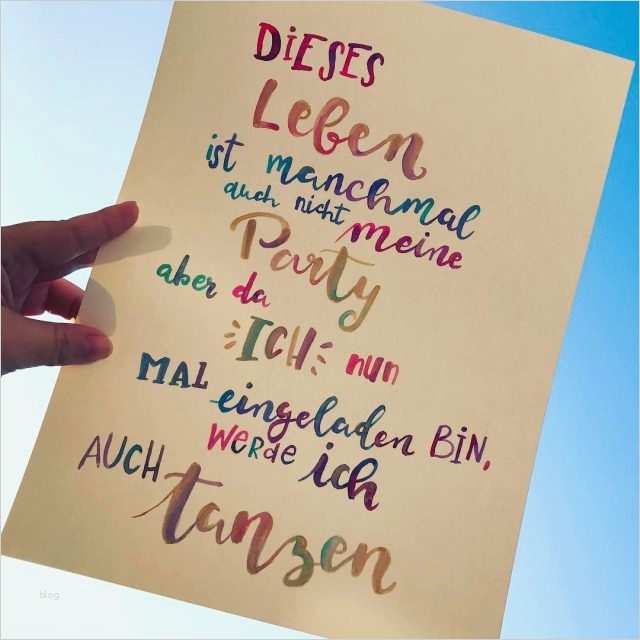 DiESES
Leben
ist manchmal
auch nicht meine
Party
aber da
ICH nun
MAL eingeladen BiN,
WeRde ich
AUCH tanzen
blog